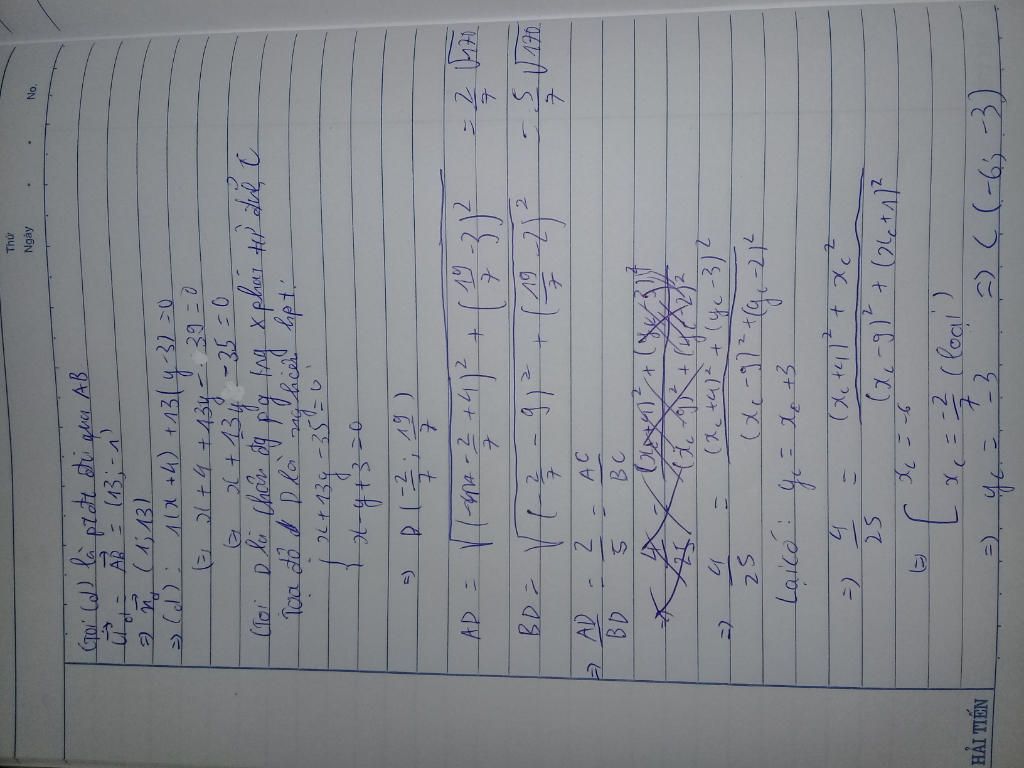 Thứ
Ngày
No.
Gọi (d) là ptđt đi qua AB
u⃗d = AB⃗ = (13; -1)
⇒ n⃗d (1; 13)
⇒ (d): 1(x + 4) + 13(y - 3) = 0
(=) x + 4 + 13y - 39 = 0
(=) x + 13y - 35 = 0
Gọi D là chân đg p/g x phát từ đỉnh C
Tọa độ D là nghiệm hpt:
{ x + 13y - 35 = 0
x - y + 3 = 0
⇒ D (-2/7; 19/7)
AD = √((-2/7 + 4)² + (19/7 - 3)²) = 2/7 √170
BD = √((-2/7 - 9)² + (19/7 - 2)²) = 5/7 √170
⇒ AD/BD = 2/5 = AC/BC
⇒ 4/25 = ((xc + 4)² + (yc - 3)²)/((xc - 9)² + (yc - 2)²)
Lại có: yc = xc + 3
⇒ 4/25 = ((xc + 4)² + xc²)/((xc - 9)² + (xc + 1)²)
(=) [ xc = -6
xc = -2/7 (loại)
⇒ yc = -3 ⇒ C (-6; -3)
HẢI TIẾN